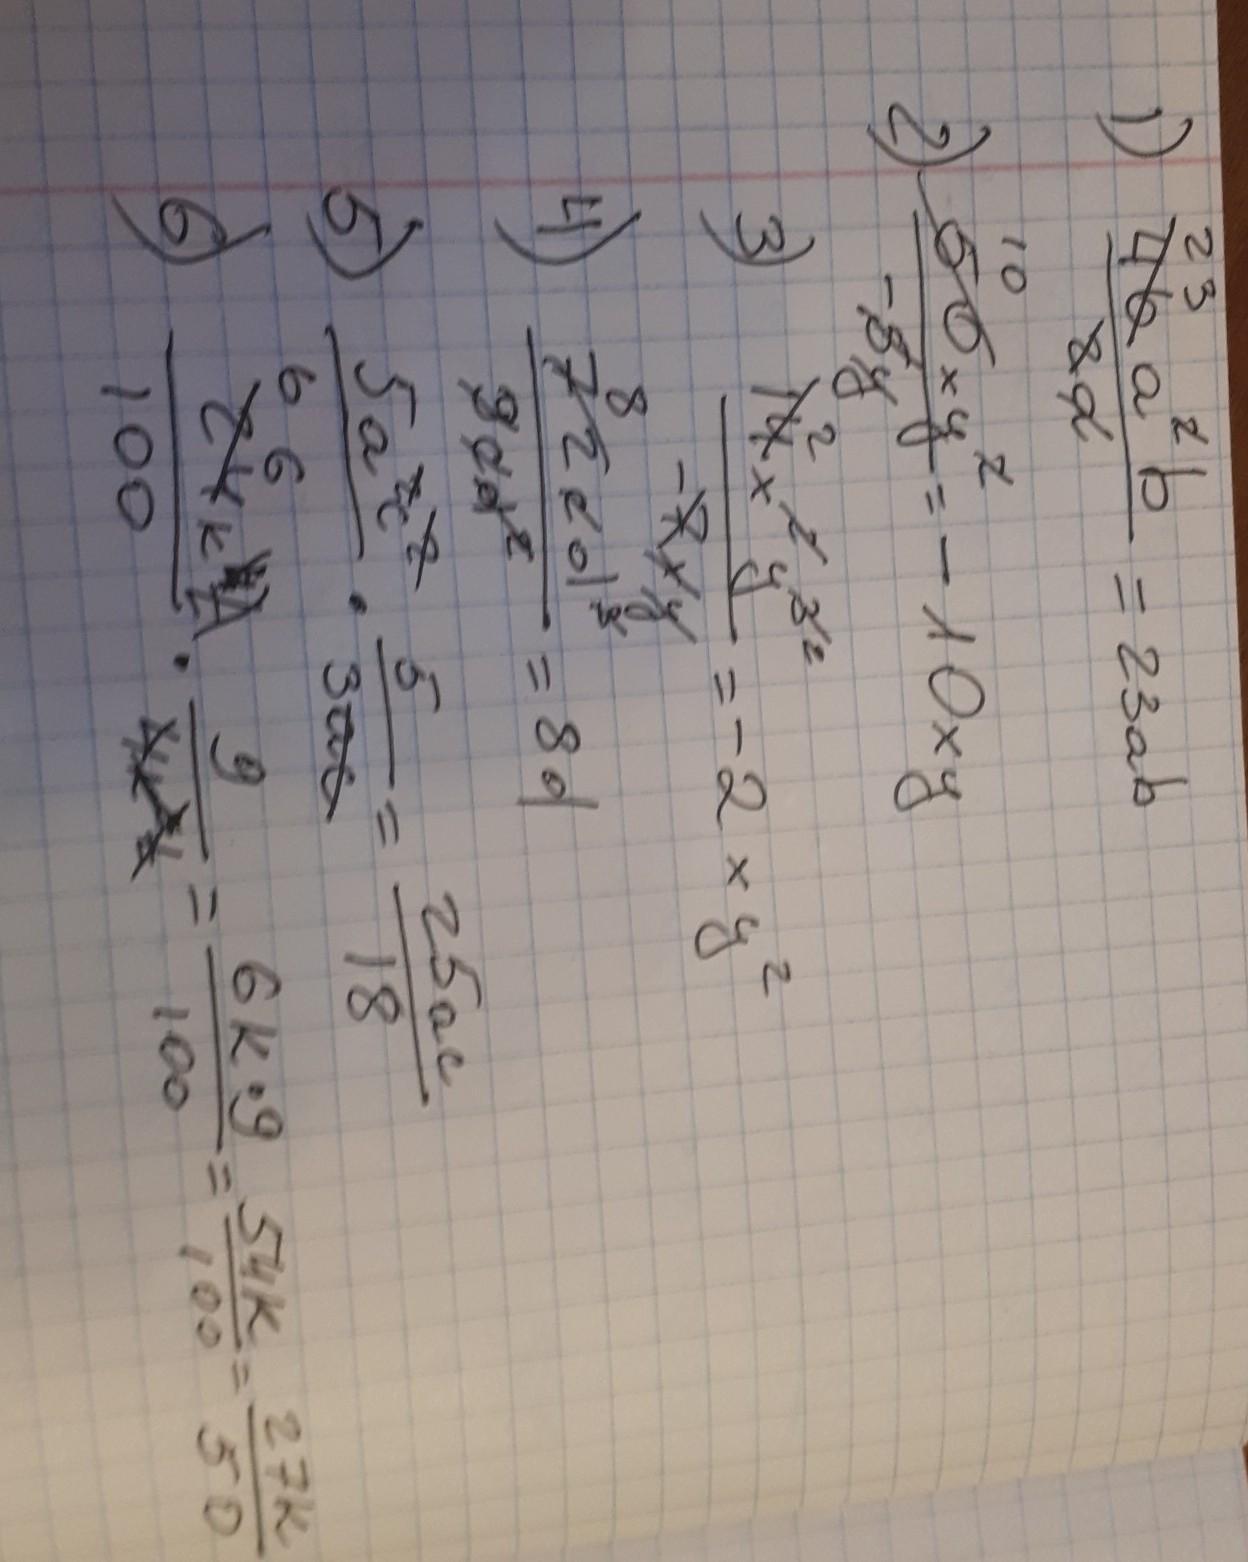 1) 46a²b / 2a = 23ab
2) 50xy² / -5y = -10xy
3) 14x²y³ / -7xy = -2xy²
4) 72cd / 9cd = 8d
5) 5a²c² / 6 · 5 / 3ac = 25ac / 18
6) 24k / 100 · 9 / 4 = 6k·9 / 100 = 54k / 100 = 27k / 50